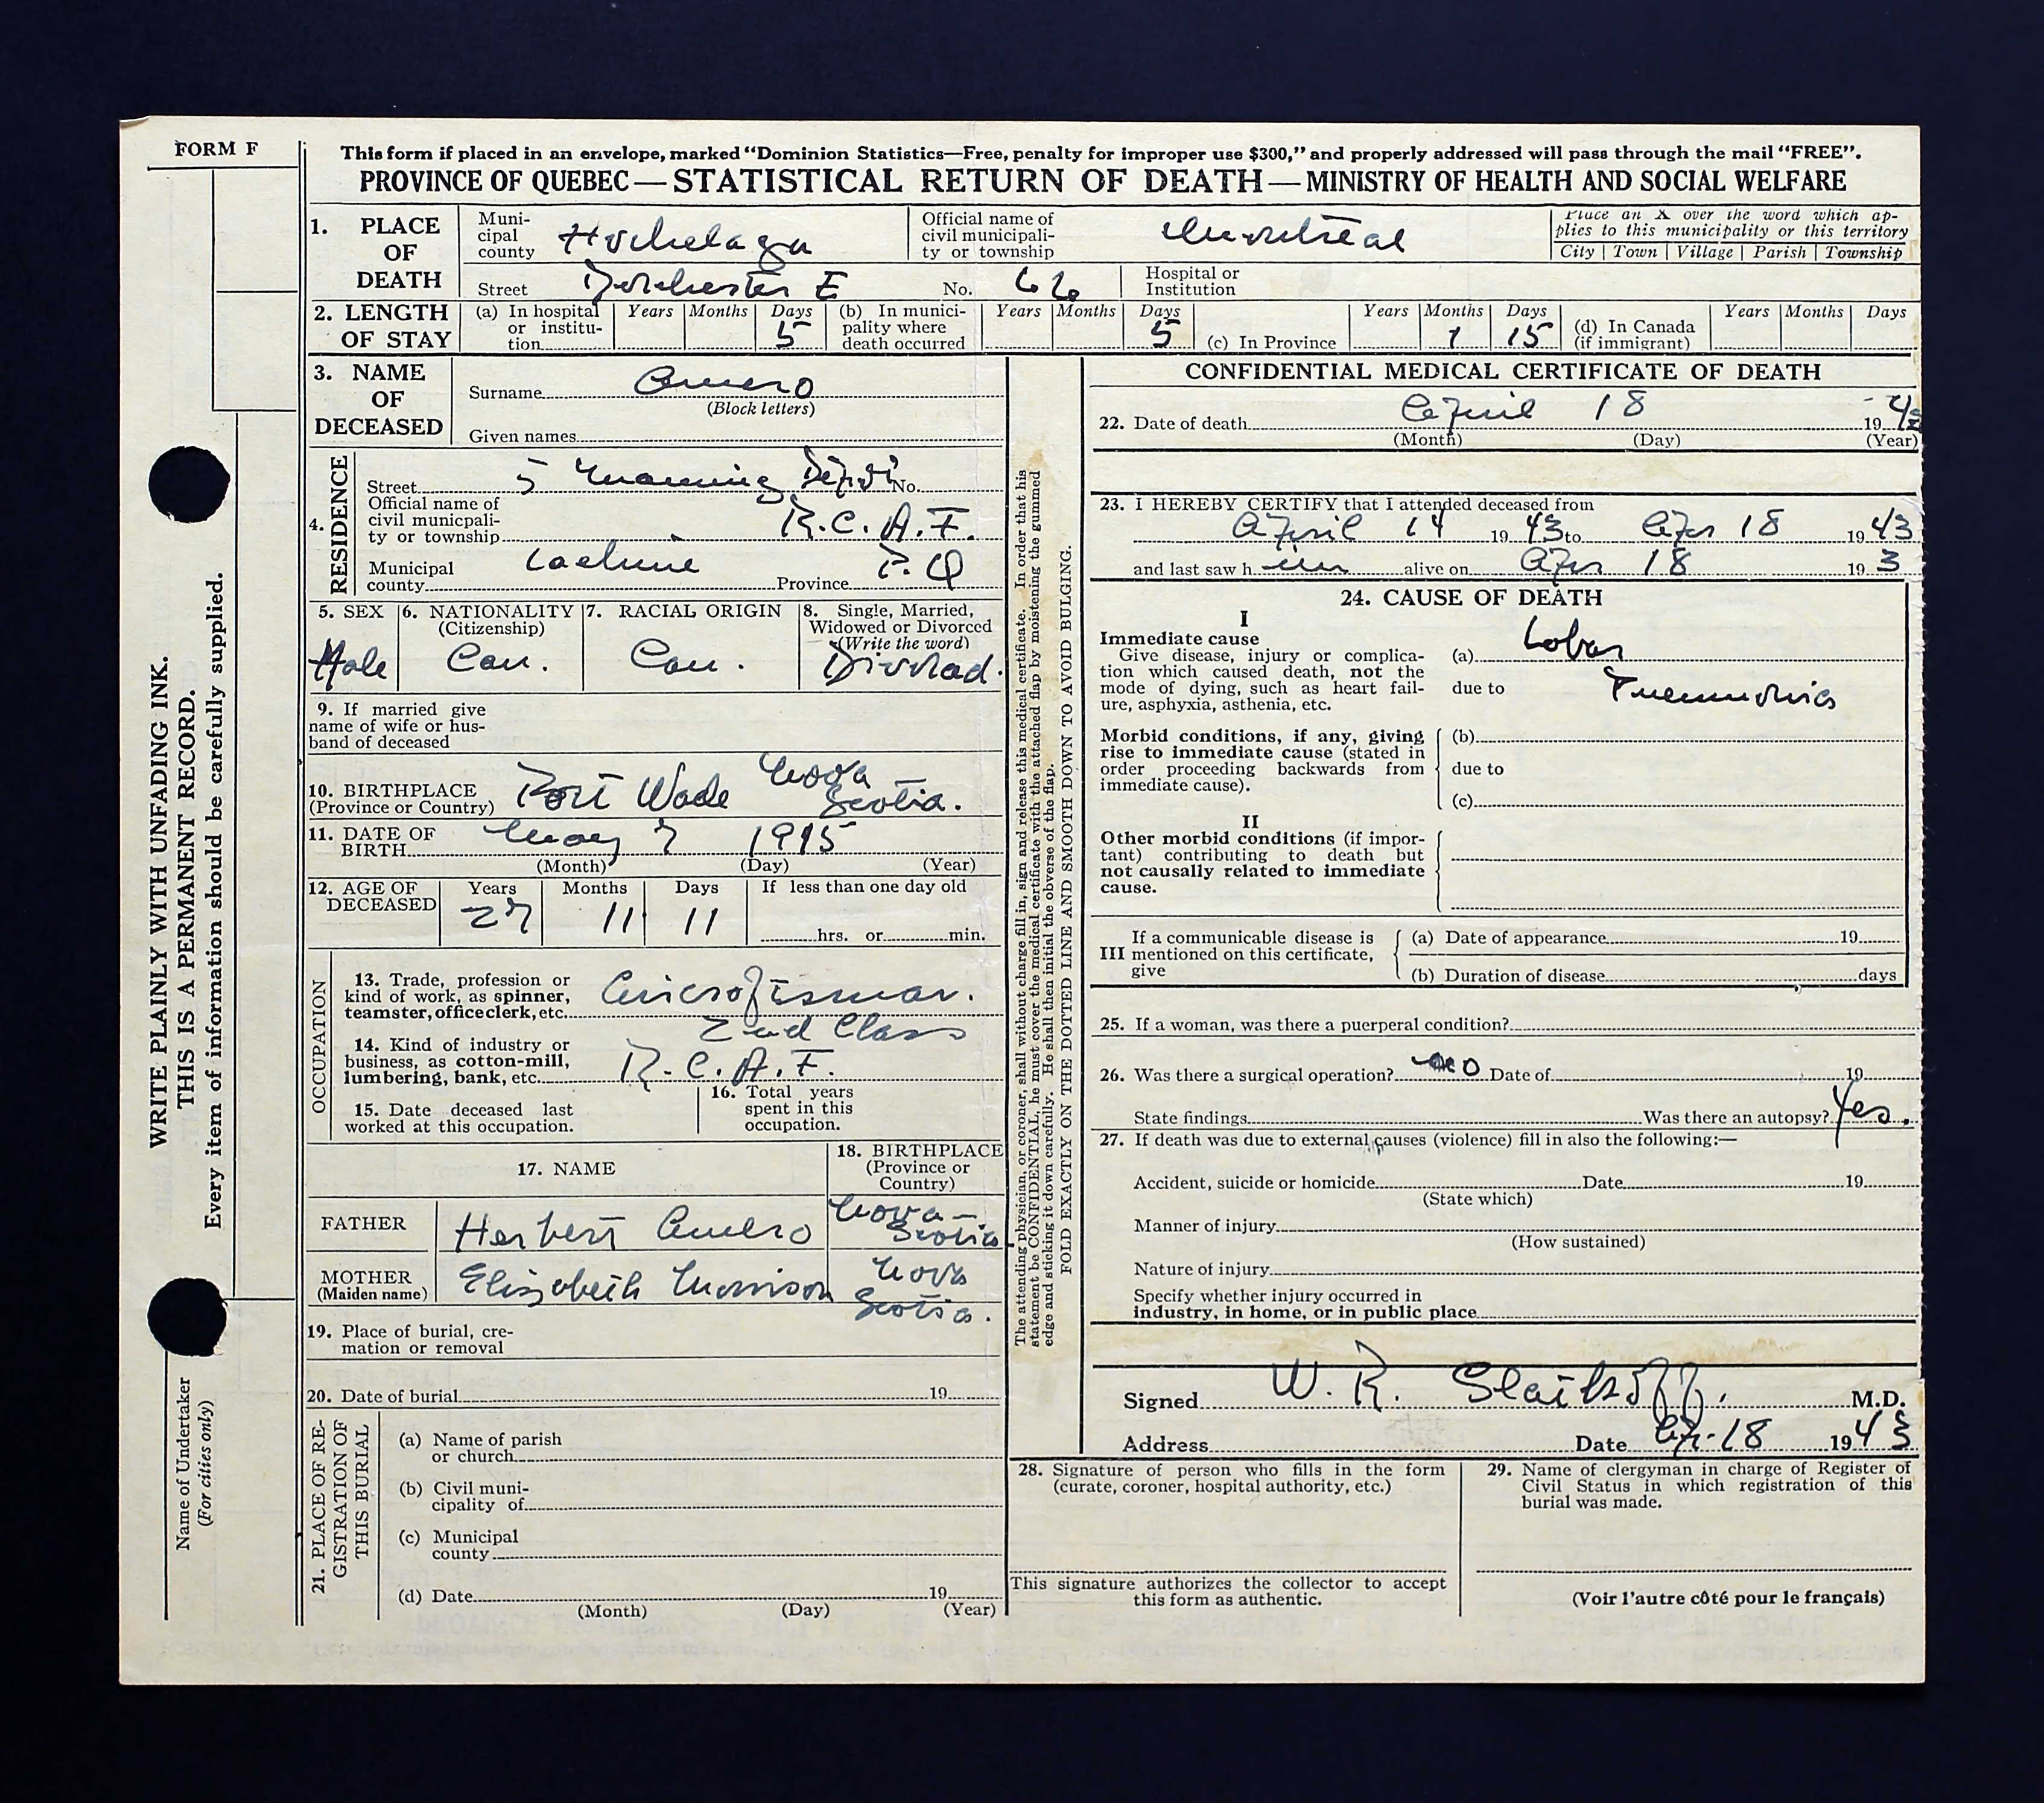 FORM F
This form if placed in an envelope, marked “Dominion Statistics—Free, penalty for improper use $300,” and properly addressed will pass through the mail “FREE”.
PROVINCE OF QUEBEC — STATISTICAL RETURN OF DEATH — MINISTRY OF HEALTH AND SOCIAL WELFARE
1. PLACE OF DEATH
Municipal county Hochelaga
Official name of civil municipality or township Montreal
Place an X over the word which applies to this municipality or this territory
City | Town | Village | Parish | Township
Street Dorchester E No. 66
Hospital or Institution
2. LENGTH OF STAY
(a) In hospital or institution Years Months Days 5
(b) In municipality where death occurred Years Months Days 5
(c) In Province Years Months 1 Days 15
(d) In Canada (if immigrant) Years Months Days
3. NAME OF DECEASED
Surname Amero
(Block letters)
Given names
4. RESIDENCE
Street 5 Manning Depot No.
Official name of civil municpality or township R.C.A.F.
Municipal county Lachine Province P.Q
5. SEX Male
6. NATIONALITY (Citizenship) Can.
7. RACIAL ORIGIN Can.
8. Single, Married, Widowed or Divorced (Write the word)
9. If married give name of wife or husband of deceased
10. BIRTHPLACE (Province or Country) Port Wade Nova Scotia.
11. DATE OF BIRTH May 7 1915
(Month) (Day) (Year)
12. AGE OF DECEASED Years 27 Months 11 Days 11
If less than one day old
hrs. or min.
OCCUPATION
13. Trade, profession or kind of work, as spinner, teamster, office clerk, etc. Aircraftsman.
2nd Class
14. Kind of industry or business, as cotton-mill, lumbering, bank, etc. R.C.A.F.
15. Date deceased last worked at this occupation.
16. Total years spent in this occupation.
17. NAME
18. BIRTHPLACE (Province or Country)
FATHER Herbert Amero Nova-Scotia
MOTHER (Maiden name) Elizabeth Morrison Nova Scotia.
19. Place of burial, cremation or removal
20. Date of burial 19
21. PLACE OF REGISTRATION OF THIS BURIAL
(a) Name of parish or church
(b) Civil municipality of
(c) Municipal county
(d) Date 19
(Month) (Day) (Year)
WRITE PLAINLY WITH UNFADING INK.
THIS IS A PERMANENT RECORD.
Every item of information should be carefully supplied.
Name of Undertaker
(For cities only)
The attending physician, or coroner, shall without charge fill in, sign and release this medical certificate. In order that his
statement be CONFIDENTIAL, he must cover the medical certificate with the attached flap by moistening the gummed
edge and sticking it down carefully. He shall then initial the obverse of the flap.
FOLD EXACTLY ON THE DOTTED LINE AND SMOOTH DOWN TO AVOID BULGING.
CONFIDENTIAL MEDICAL CERTIFICATE OF DEATH
22. Date of death April 18 1943
(Month) (Day) (Year)
23. I HEREBY CERTIFY that I attended deceased from
April 14 1943 to Apr 18 1943
and last saw him alive on Apr 18 193
24. CAUSE OF DEATH
I
Immediate cause
Give disease, injury or complication which caused death, not the mode of dying, such as heart failure, asphyxia, asthenia, etc.
(a) Lobar
due to Pneumonia
Morbid conditions, if any, giving rise to immediate cause (stated in order proceeding backwards from immediate cause).
(b)
due to
(c)
II
Other morbid conditions (if important) contributing to death but not causally related to immediate cause.
III If a communicable disease is mentioned on this certificate, give
(a) Date of appearance 19
(b) Duration of disease days
25. If a woman, was there a puerperal condition?
26. Was there a surgical operation? no Date of 19
State findings Was there an autopsy? Yes.
27. If death was due to external causes (violence) fill in also the following:—
Accident, suicide or homicide Date 19
(State which)
Manner of injury
(How sustained)
Nature of injury
Specify whether injury occurred in industry, in home, or in public place
Signed W. R. M.D.
Address Date Apr-18 1943
28. Signature of person who fills in the form (curate, coroner, hospital authority, etc.)
This signature authorizes the collector to accept this form as authentic.
29. Name of clergyman in charge of Register of Civil Status in which registration of this burial was made.
(Voir l'autre côté pour le français)